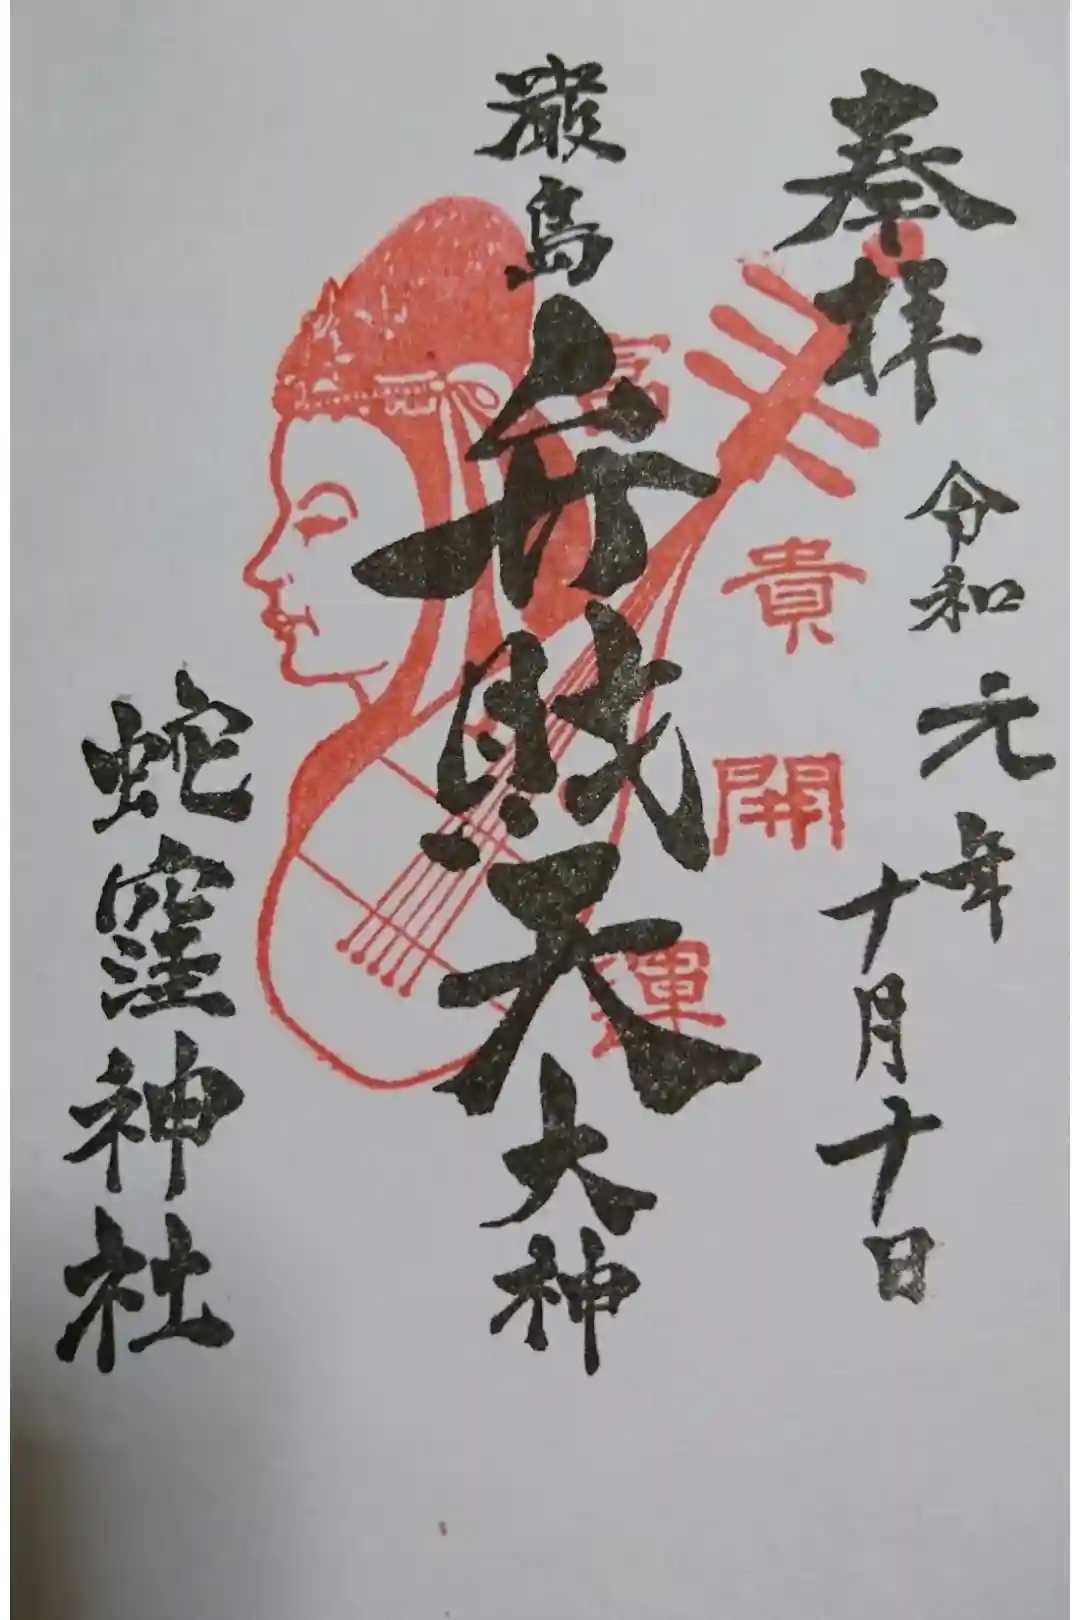 奉拝
令和元年
十月十日
富貴開運
巌島
弁財天
大神
蛇窪神社